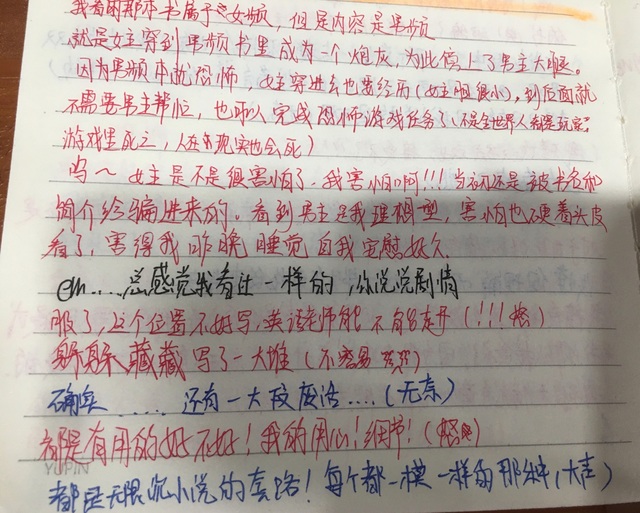 我看的那本书属于女频，但是内容是男频
就是女主穿到男频书里成为一个炮灰，为此傍上了男主大腿。
因为男频本就恐怖，女主穿进去也要经历（女主胆很小），到后面就
不需要男主帮忙，也可以完成恐怖游戏任务了（不是全世界人都是玩家，
游戏里死亡，人在现实也会死）
呜～女主是不是很害怕了，我害怕啊！！！当初还是被书名和
简介给骗进来的。看到男主是我理想型，害怕也硬着头皮
看了，害得我昨晚睡觉自我安慰好久
em……总感觉我看过一样的，你说说剧情
服了，这个位置不好写，英语老师能不能走开（！！！怒）
躲躲藏藏写了一大堆（不容易
确实……还有一大段废话……（无奈）
都是有用的好不好！我的用心！细节！（怒
YUPIN
都是无限流小说的套路！每个都一模一样的那种（大声）